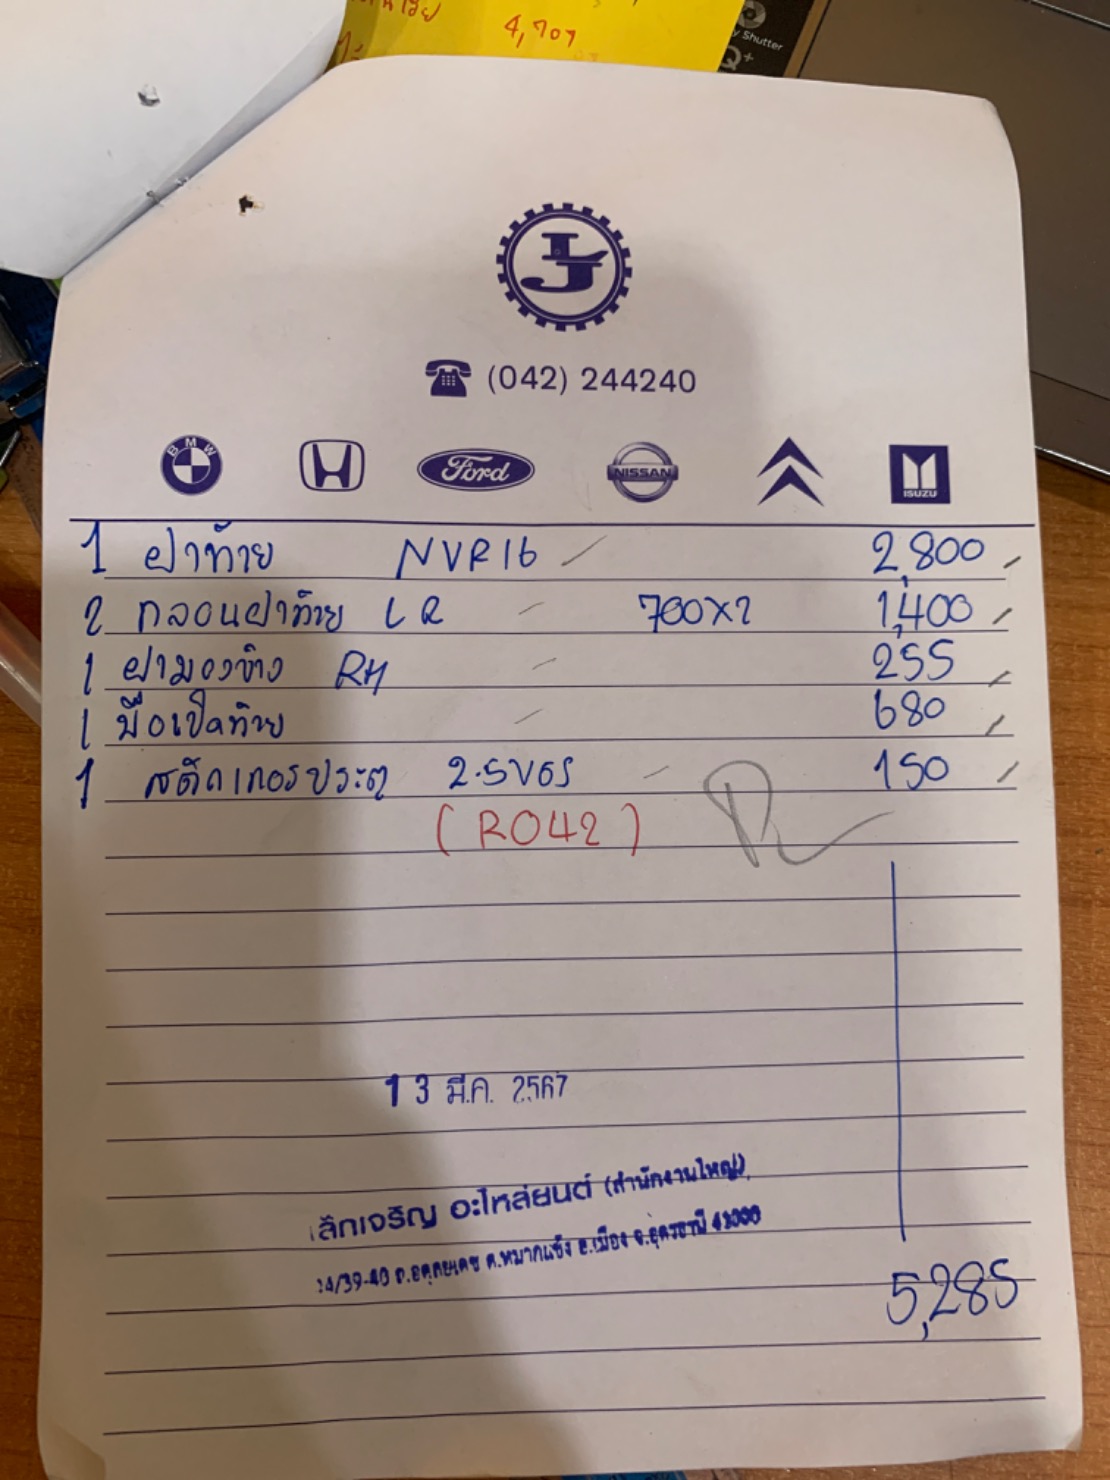 4,707
y Shutter
(042) 244240
BMW
Ford
NISSAN
ISUZU
1 ฝาท้าย NVR16 2,800
2 กลอนฝาท้าย LR 700x2 1,400
1 ฝามองข้าง RH 255
1 มือเปิดท้าย 680
1 สติกเกอรประตู 2.5VGS 150
(R042)
13 มี.ค. 2567
เล็กเจริญ อะไหล่ยนต์ (สำนักงานใหญ่)
14/39-40 ถ.อดุลยเดช ต.หมากแข้ง อ.เมือง จ.อุดรธานี 41000
5,285